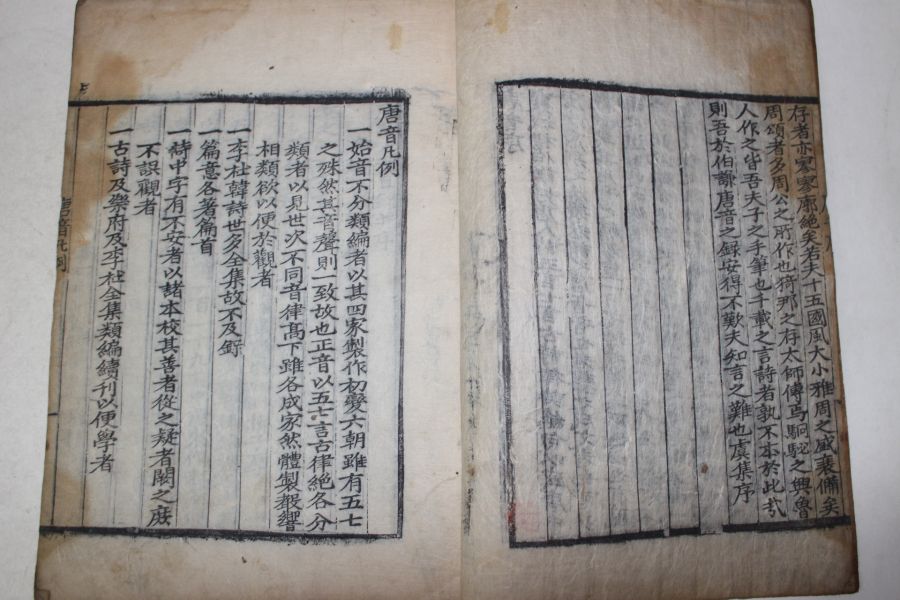 存者亦寥寥廓絶矣若夫十五國風大小雅周之盛衰備矣
周頌者多周公之所作也猗那之存太師傅焉駉駜之興魯
人作之皆吾夫子之手筆也千載之言詩者孰不本於此哉
則吾於伯謙唐音之録安得不歎夫知言之難也虞集序
唐音凡例
一始音不分類編者以其四家製作初變六朝雖有五七
之殊然其音聲則一致故也正音以五七言古律絶各分
類者以見世次不同音律高下雖各成家然體製聲響
相類欲以便於觀者
一李杜韓詩世多全集故不及錄
一篇意各著篇首
一詩中字有不安者以諸本校其善者從之疑者闕之庶
不誤觀者
一古詩及樂府及李杜全集類編續刊以便學者
唐音凡例